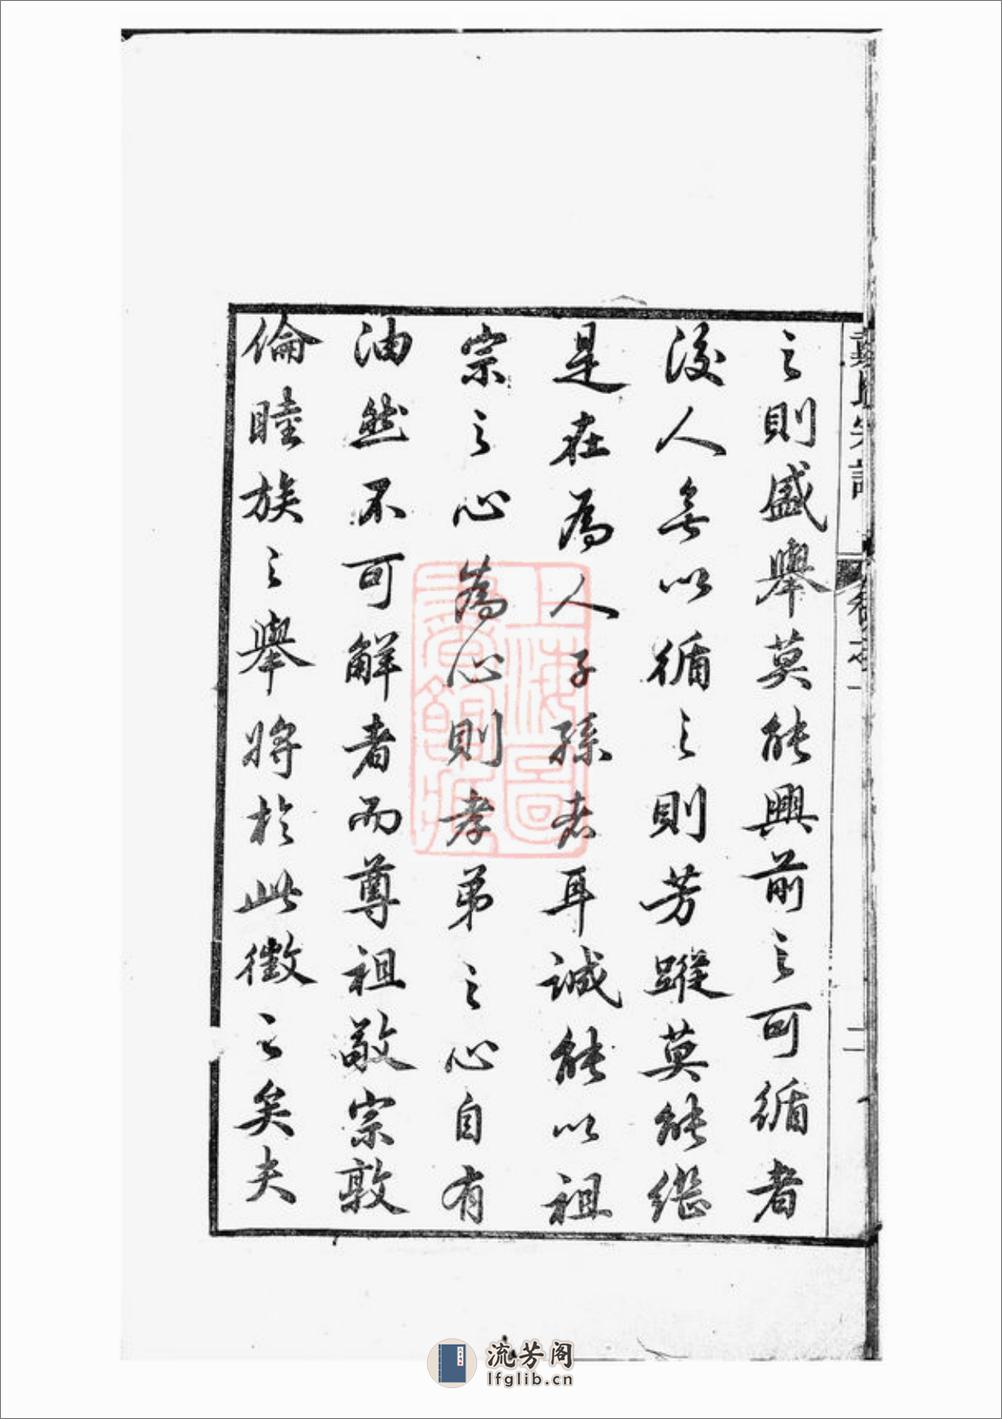 之則盛舉莫能興前之可循者
後人無以循之則芳蹤莫能繼
是在為人子孫者耳誠能以祖
宗之心為心則孝弟之心自有
油然不可解者而尊祖敬宗敦
倫睦族之舉將於此徵之矣夫
二
上海圖書館藏
流芳阁
lfglib.cn